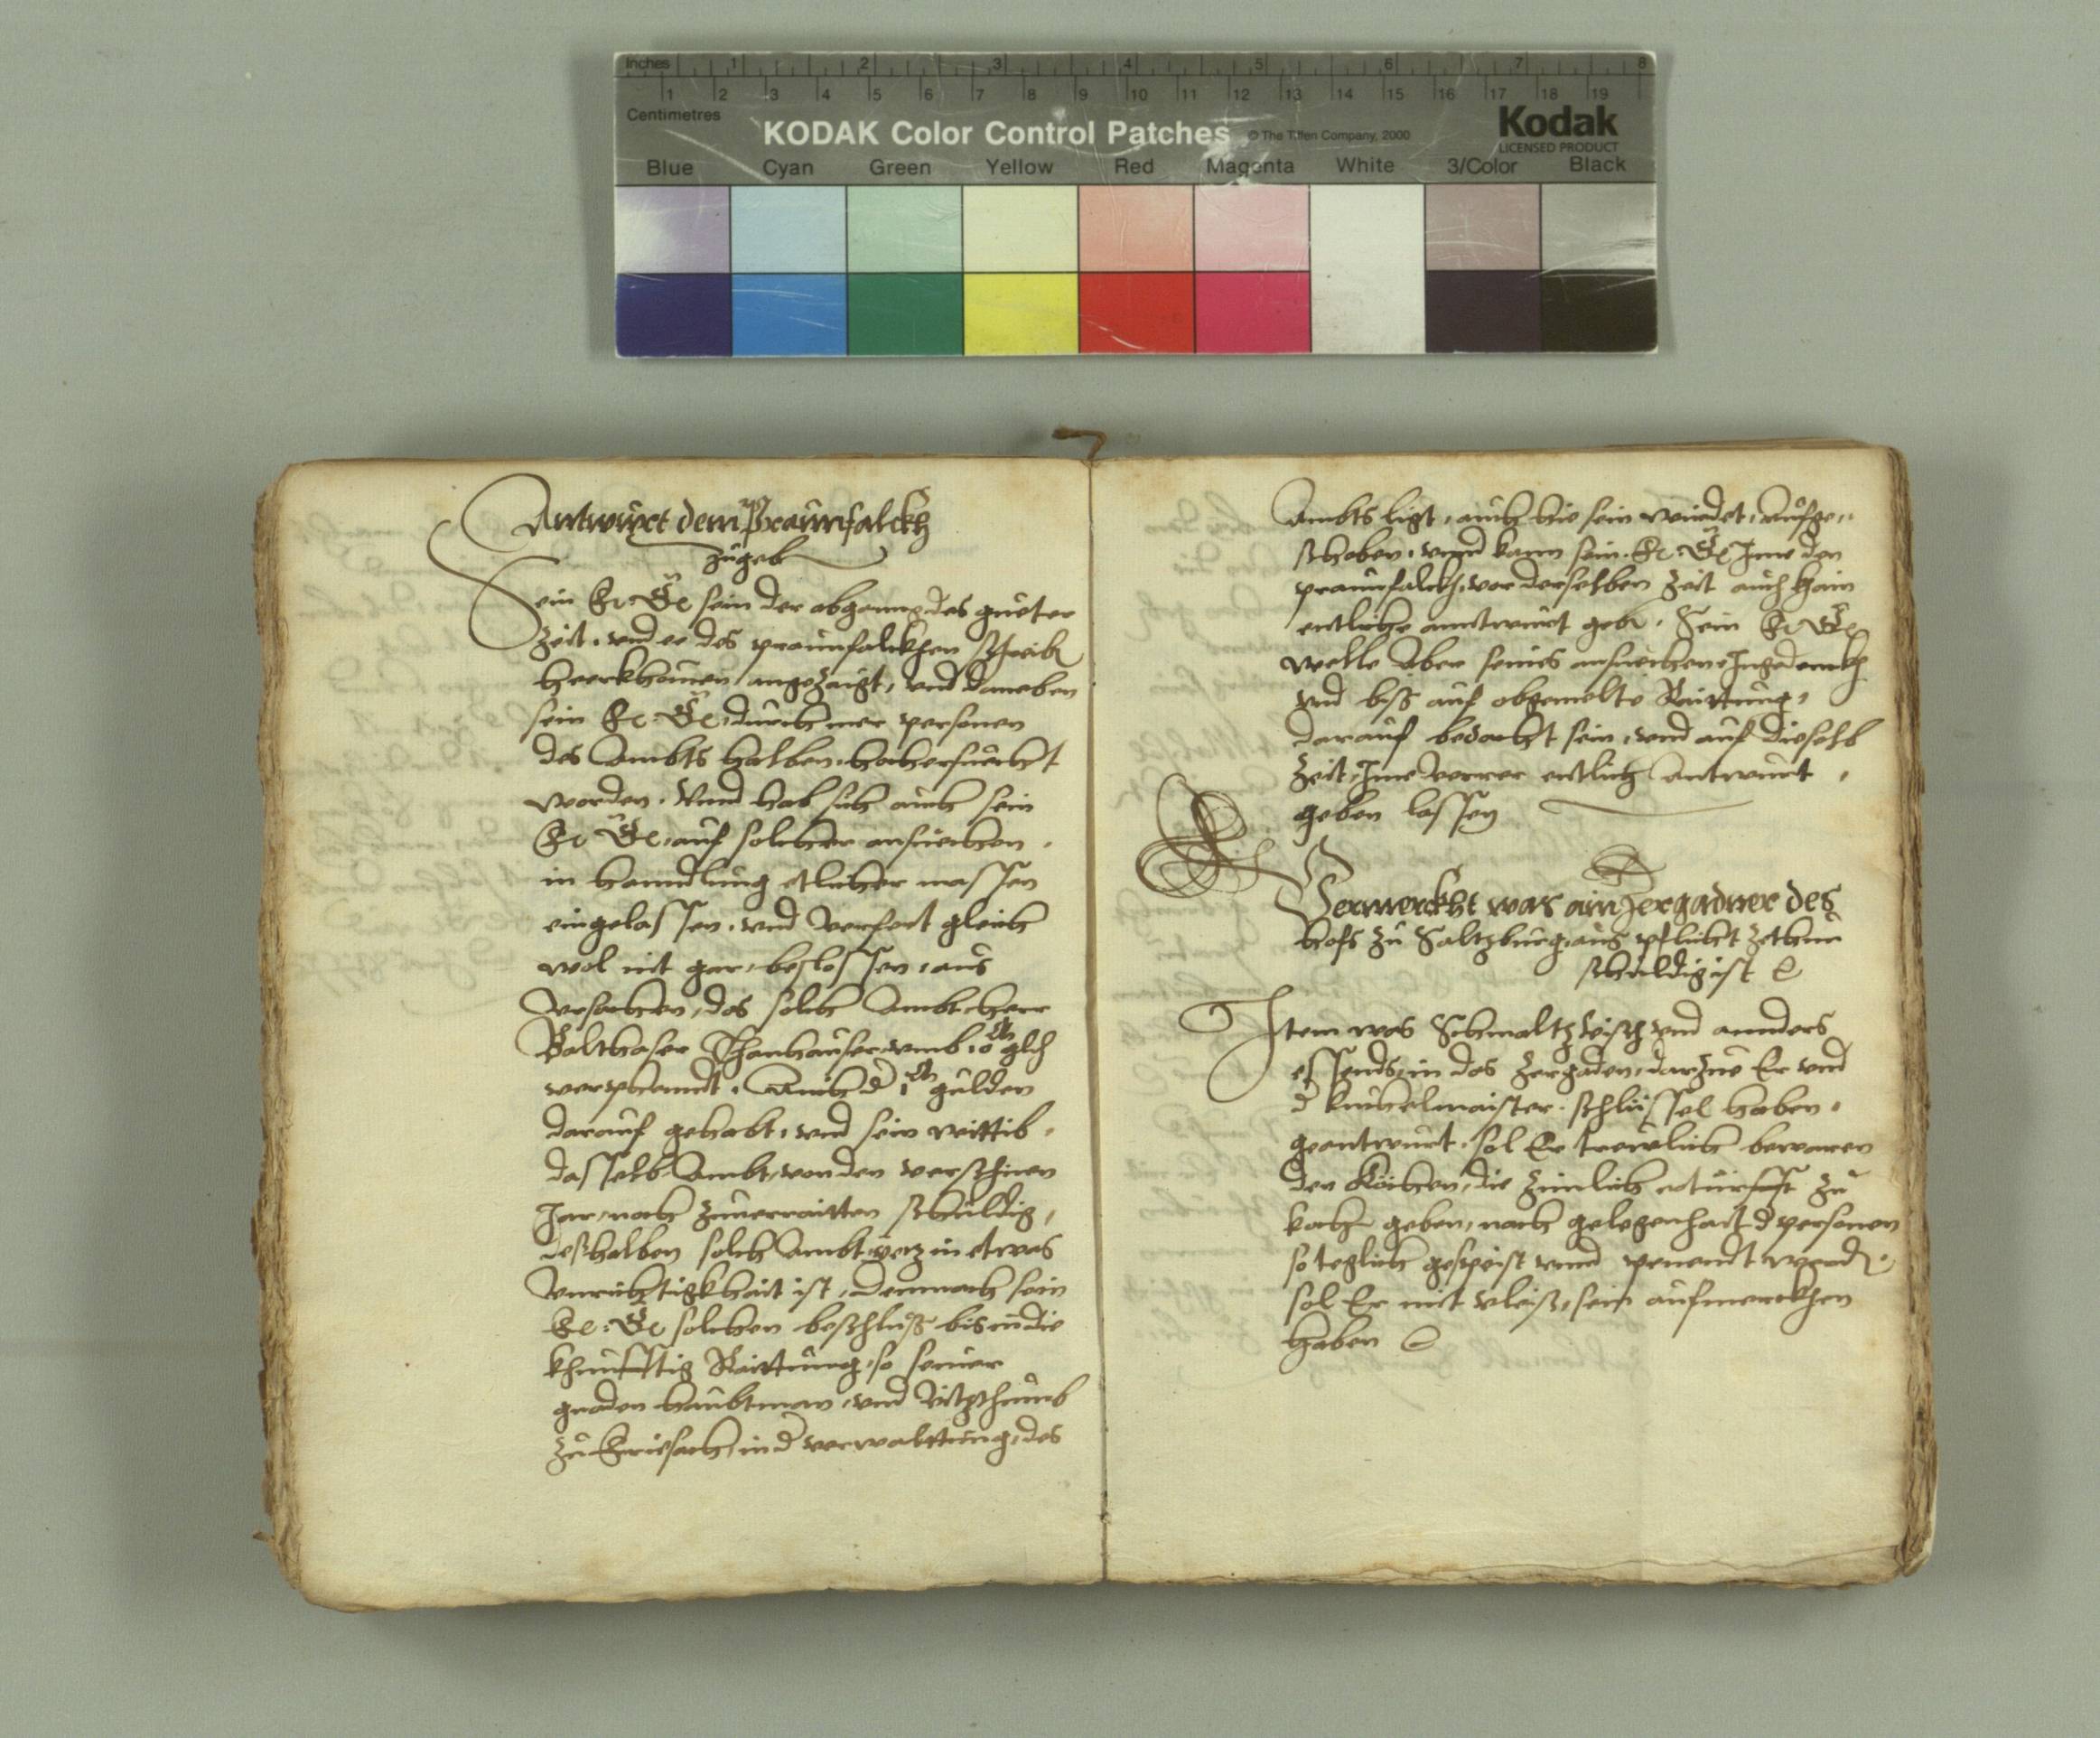 Inches 1 2 3 4 5 6 7 8
1 2 3 4 5 6 7 8 9 10 11 12 13 14 15 16 17 18 19
Centimetres
KODAK Color Control Patches © The Tiffen Company, 2000
Kodak
LICENSED PRODUCT
Blue Cyan Green Yellow Red Magenta White 3/Color Black
Antwurt dem Praunfalckh
zugeb
Sein Fr: Ge sein der abganng des gueter
Zeit, vnd ee des praunfalckhen
angezaigt, vnd daneben
sein Fr: Ge, durch mer personen
des Ambts halben, hochersuecht
worden. Vnnd hab sich auch sein
Fr: Ge, auf solcher ansuechen,
in hanndlung etlicher massen
eingelassen, vnd gleich
wol nit gar beslossen, aus
vrsachen, das solch Ambt, herr
Balthasar Thanhauser, vmb
Auch gulden
darauf gehabt, vnd sein wittib,
dasselb Ambt, von den verschinen
Jar, noch zuuerraitten schuldig,
deßhalben solch Ambt, yetz in etwas
vnrichtigkhait ist, Demnach sein
Fr: Ge solchen beschluß bis an die
khunfftig Raittung, so seiner
gnaden haubtman, vnd Vitzthumb
zu Friesach, in d verwalttung, des
Ambts ligt, auch hie sein wirdet, aufge„
schoben, vnnd kann sein Fr: Ge Ime den
praunfalckh, vor derselben Zeit auch khain
entliche anntwurt geben. Sein Fr: Ge
welle Aber seines ansuechen, Ingedenckh
vnd biss auf obgemelte Raittung,
darauf bedacht sein, vnd auf dieselb
Zeit, Ime verrer entlich Antwurt,
geben lassen
Vermerckht was ain Zergadner des
hofs zu Saltzburg, aus pflicht zethun
schuldig ist
Item was Schmaltz, visch, vnd annders
essends, in das Zergaden, darzue Er vnd
d kuchelmaister, schlüssel haben,
geantwurt, sol Er trewlich bewaren
den Köchen, die zimlich noturfft zu
kochen geben, nach gelegenhait d personen
so teglich gespeist vnnd
sol Er mit vleiß, sein aufmerckhen
haben